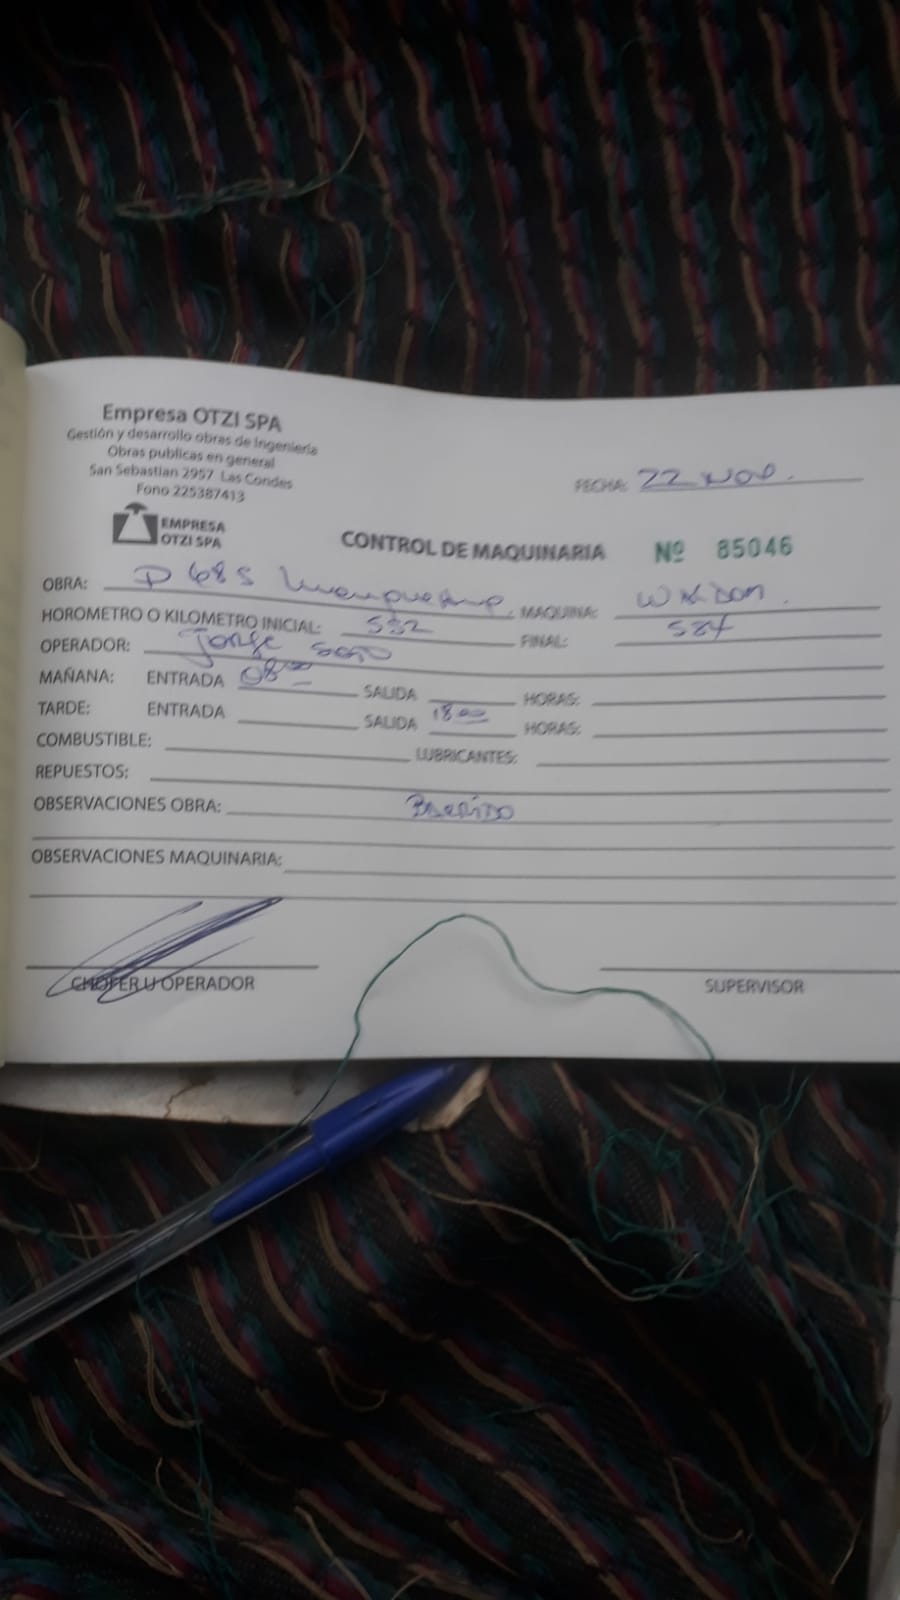 Empresa OTZI SPA
Gestión y desarrollo obras de Ingeniería
Obras publicas en general
San Sebastian 2957 Las Condes
Fono 225387413
FECHA: 22 NOV.
EMPRESA
OTZI SPA
CONTROL DE MAQUINARIA Nº 85046
OBRA: D 685 MAQUINA: WALDON.
HOROMETRO O KILOMETRO INICIAL: 532 FINAL:
OPERADOR: Jorge Soto
MAÑANA: ENTRADA 08:00 SALIDA HORAS:
TARDE: ENTRADA SALIDA 18:00 HORAS:
COMBUSTIBLE: LUBRICANTES:
REPUESTOS:
OBSERVACIONES OBRA: BARRIDO
OBSERVACIONES MAQUINARIA:
CHOFER U OPERADOR SUPERVISOR